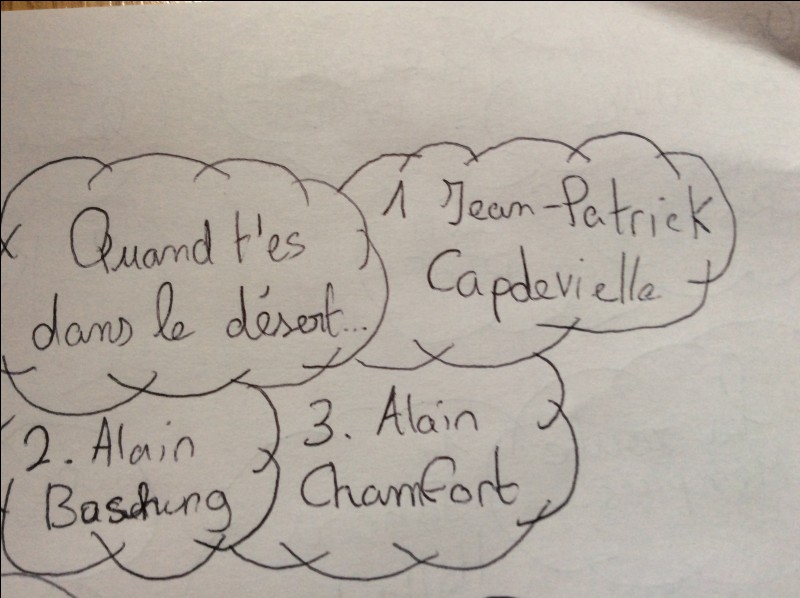 Quand t'es
dans le désert...
1 Jean-Patrick
Capdevielle
2. Alain
Baschung
3. Alain
Chamfort